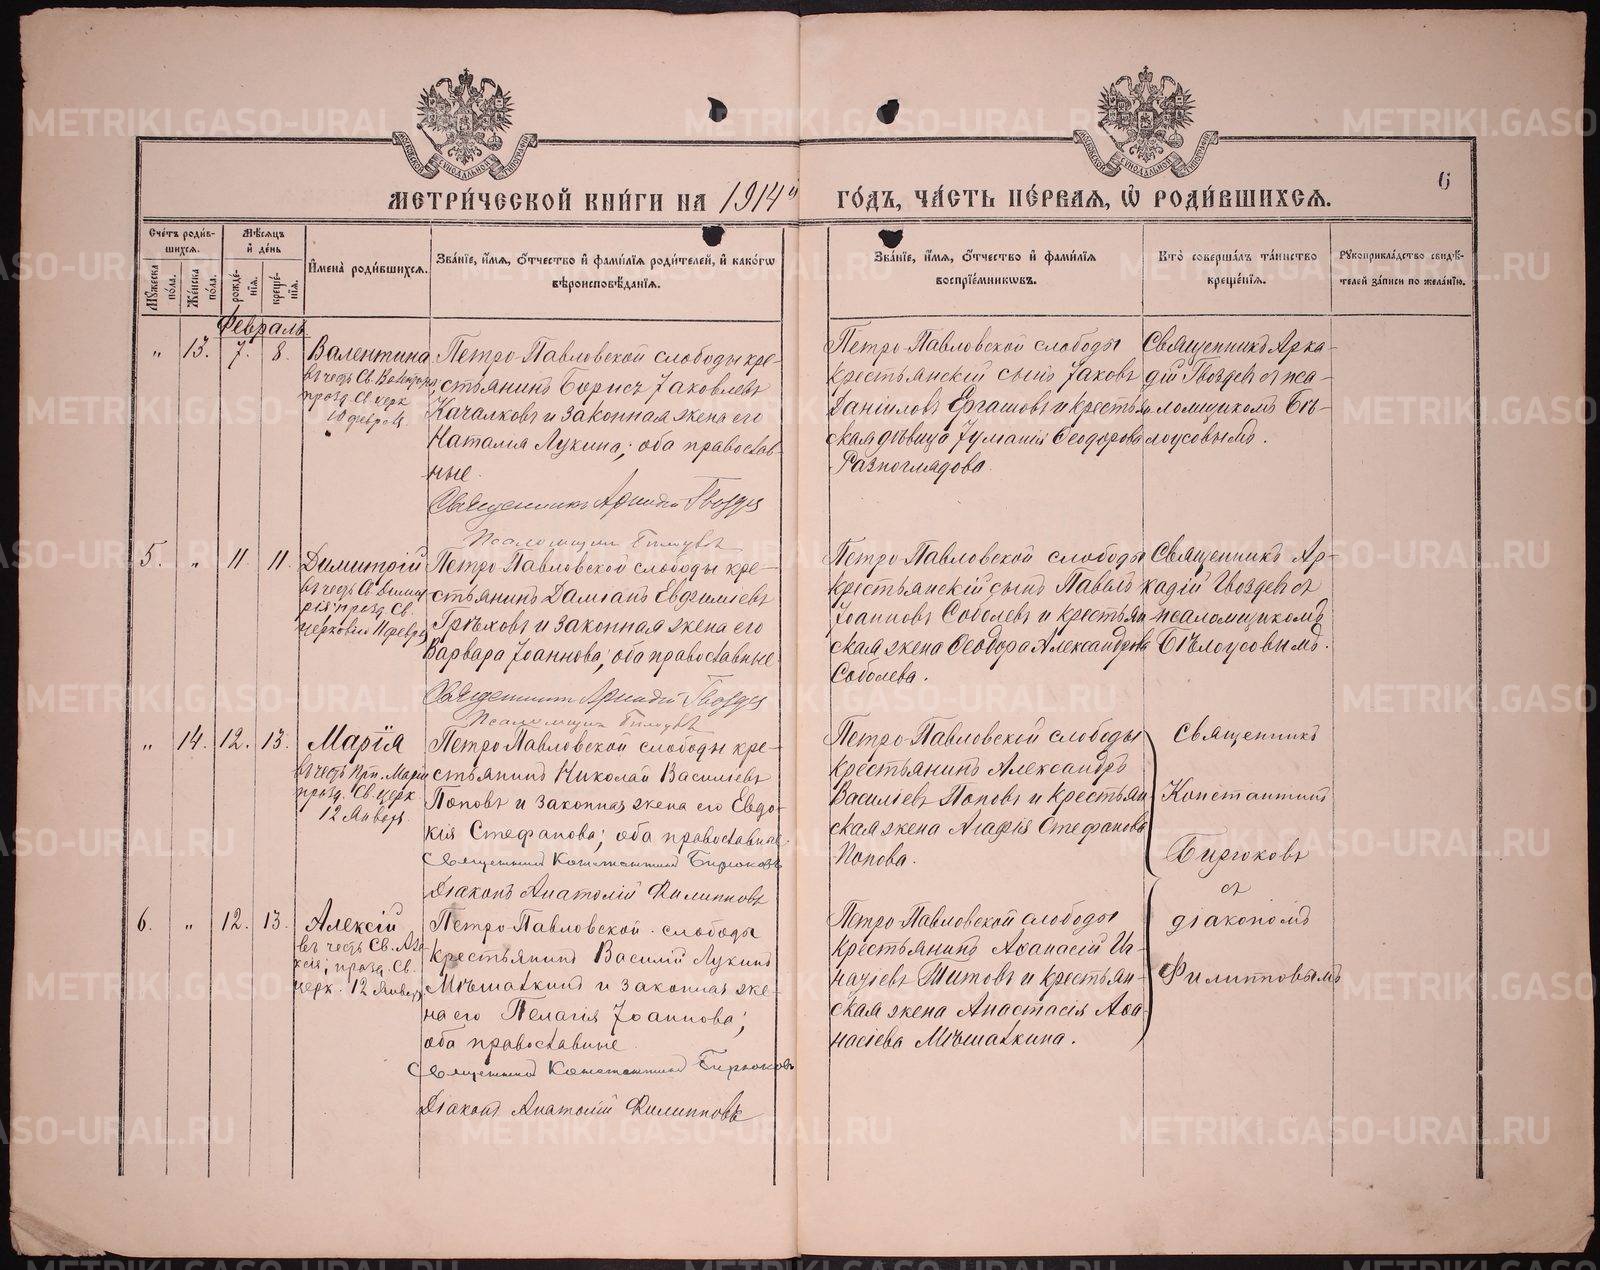 МЕТРИ́ЧЕСКОЙ КНИ́ГИ НА 1914й ГО́ДЪ, ЧА́СТЬ ПЕ́РВАЯ, Ѡ РОДИ́ВШИХСЯ.
6
Сче́тъ роди́в-
шихся.
Мꙋ́жеска по́ла.
Же́нска по́ла.
Мѣ́сяцъ
и де́нь
рожде́-
нїя.
креще́-
нїя.
И҆мена̀ роди́вшихся.
Зва́нїе, и҆́мя, ѻ҆́тчество и҆ фами́лїя роди́телей, и҆ како́гѡ
вѣроисповѣ́данїя.
Зва́нїе, и҆́мя, ѻ҆́тчество и҆ фами́лїя
воспрїе́мникѡвъ.
Кто̀ соверша́лъ та́инство
креще́нїя.
Рꙋкоприкла́дство свидѣ́-
телей за́писи по жела́нїю.
Февраль.
„ 13. 7. 8.
Валентина
въ честь Св.
празд. Св. церк
10 февраля.
Петро-Павловской слободы кре-
стьянинъ Борисъ Іаковлевъ
Качалковъ и законная жена его
Наталія Лукина; оба православ-
ные.
Священникъ Аркадій Гвоздев
Псаломщик
Петро-Павловской слободы
крестьянскій сынъ Іаковъ
Даніиловъ Ергашовъ и крестьян
ская дѣвица Іуліанія Ѳеодорова
Разноглядова.
Священникъ Арка-
дій Гвоздевъ съ пса-
ломщикомъ Бѣ-
лоусовымъ.
5. „ 11. 11.
Димитрій
въ честь Св. Дими
рія празд. Св.
церковію 11 февр
Петро-Павловской слободы кре-
стьянинъ Даміанъ Евѳиміевъ
Грѣховъ и законная жена его
Варвара Іоаннова; оба православные
Священникъ Аркадій Гвоздев
Псаломщик
Петро-Павловской слободы
крестьянскій сынъ Павелъ
Іоанновъ Соболевъ и крестьян
ская жена Ѳеодора Александрова
Соболева.
Священникъ Ар-
кадій Гвоздевъ съ
псаломщикомъ
Бѣлоусовымъ.
„ 14. 12. 13.
Марія
въ честь Прп. Маріи
празд. Св. церк
12 Январ.
Петро-Павловской слободы кре-
стьянинъ Николай Василіевъ
Поповъ и законная жена его Евдо-
кія Стефанова; оба православные.
Священникъ Константинъ Бирюковъ
Діаконъ Анатолій Филипповъ
Петро-Павловской слободы
крестьянинъ Александръ
Василіевъ Поповъ и крестьян
ская жена Агаѳія Стефанова
Попова.
Священникъ
Константинъ
Бирюковъ
съ
діакономъ
Филипповымъ
6. „ 12. 13.
Алексій
въ честь Св. Але
ксія; празд. Св.
церк. 12 Январ
Петро-Павловской слободы
крестьянинъ Василій Лукинъ
Мѣшалкинъ и законная же-
на его Пелагія Іоаннова;
оба православные
Священникъ Константинъ Бирюковъ
Діаконъ Анатолій Филипповъ
Петро-Павловской слободы
крестьянинъ Аѳанасій Иг-
натіевъ Титовъ и крестьян-
ская жена Анастасія Аѳа-
насіева Мѣшалкина.
METRIKI.GASO-URAL.RU